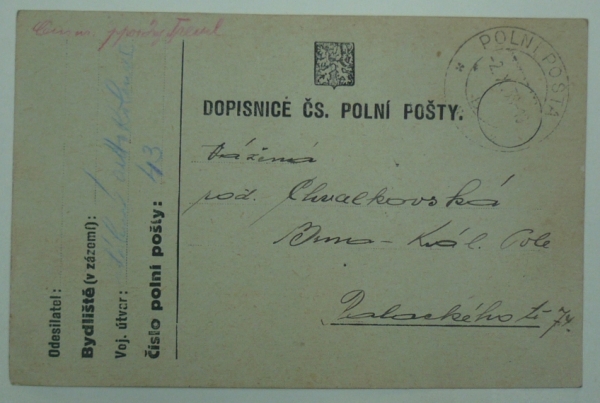 POLNÍ POŠTA
DOPISNICE ČS. POLNÍ POŠTY.
Vážená
pod. Chvalkovská
Brno - Král. Pole
Palackého tř 74.
Odesílatel:
Bydliště (v zázemí):
Voj. útvar:
Číslo polní pošty: 43